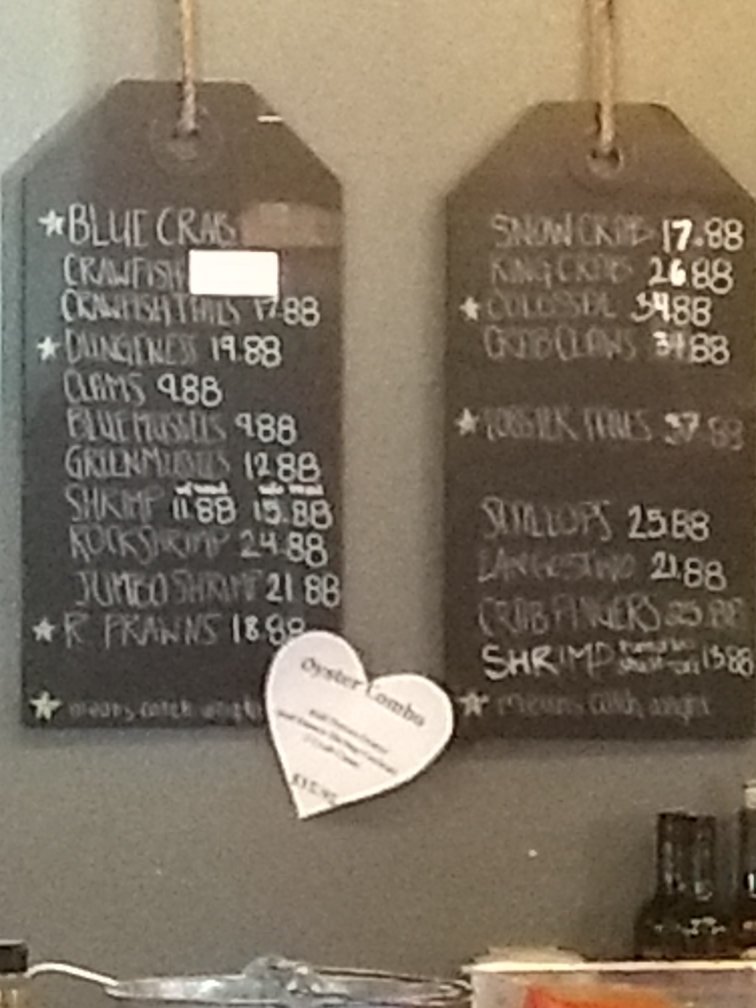 ★ BLUE CRAB
CRAWFISH
CRAWFISH TAILS 17.88
★ DUNGENESS 19.88
CLAMS 9.88
BLUE MUSSELS 9.88
GREEN MUSSELS 12.88
w/head w/o head
SHRIMP 11.88 15.88
ROCK SHRIMP 24.88
JUMBO SHRIMP 21.88
★ R. PRAWNS 18.88
★ means catch weight
Oyster Combo
SNOW CRAB 17.88
KING CRAB 26.88
★ COLOSSAL 34.88
CRAB CLAWS 34.88
★ LOBSTER TAILS 37.88
SCALLOPS 25.88
LANGOSTINO 21.88
CRAB FINGERS 25.88
SHRIMP 13.88
★ means catch weight